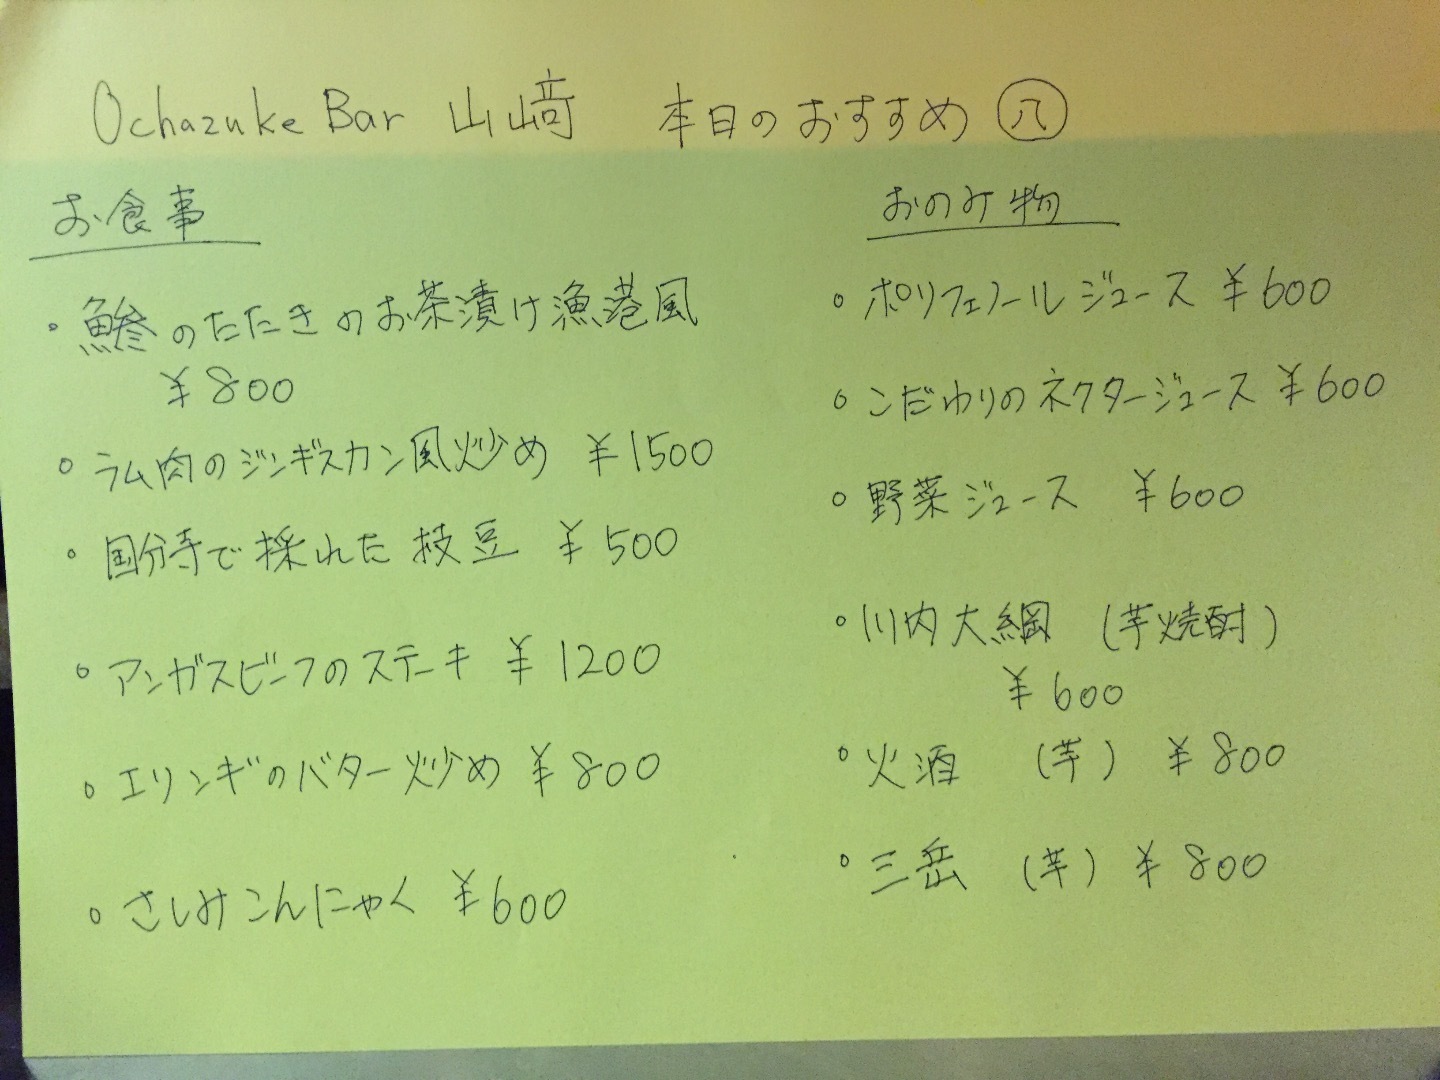 Ochazuke Bar 山﨑 本日のおすすめ 八
お食事
・鯵のたたきのお茶漬け漁港風
¥800
・ラム肉のジンギスカン風炒め ¥1500
・国分寺で採れた枝豆 ¥500
・アンガスビーフのステーキ ¥1200
・エリンギのバター炒め ¥800
・さしみこんにゃく ¥600
おのみ物
・ポリフェノールジュース ¥600
・こだわりのネクタージュース ¥600
・野菜ジュース ¥600
・川内大綱 (芋焼酎)
¥600
・火酒 (芋) ¥800
・三岳 (芋) ¥800